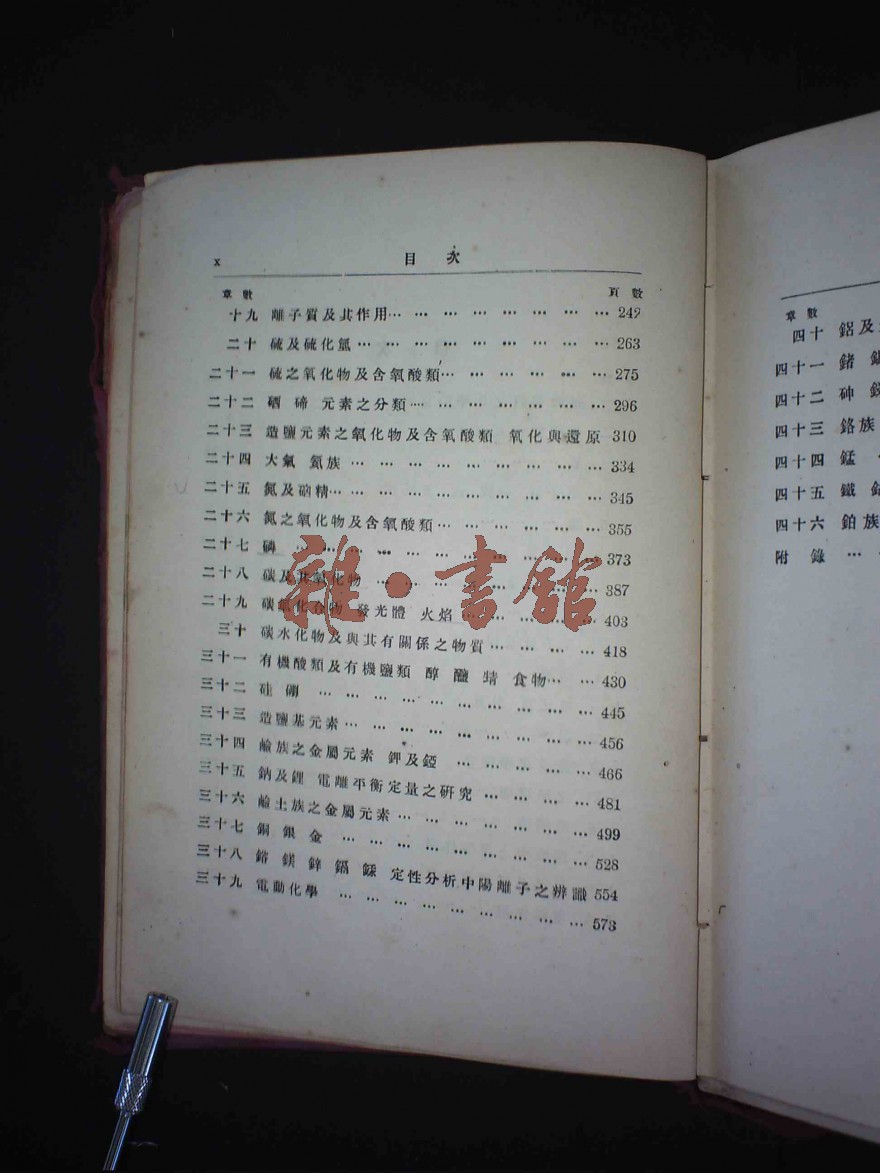 x 目次
章數 頁數
十九 離子質及其作用… … … … … … … … 249
二十 硫及硫化氫… … … … … … … … … 263
二十一 硫之氧化物及含氧酸類… … … … … … 275
二十二 硒 碲 元素之分類… … … … … … … 296
二十三 造鹽元素之氧化物及含氧酸類 氧化與還原 310
二十四 大氣 氦族 … … … … … … … … … 334
二十五 氮及硇精… … … … … … … … … … 345
二十六 氮之氧化物及含氧酸類… … … … … … 355
二十七 磷 … … … … … … … … … … … 373
二十八 碳及其氧化物 … … … … … … … … 387
二十九 碳氫化合物 發光體 火焰… … … … … 403
三十 碳水化物及與其有關係之物質… … … … 418
三十一 有機酸類及有機鹽類 醇 食物… … 430
三十二 硅 硼 … … … … … … … … … … 445
三十三 造鹽基元素… … … … … … … … … 456
三十四 鹼族之金屬元素 鉀及錏 … … … … … 466
三十五 鈉及鋰 電離平衡定量之研究 … … … … 481
三十六 鹼土族之金屬元素… … … … … … … 499
三十七 銅 銀 金 … … … … … … … … … 528
三十八 鎂 鋅 鎘 定性分析中陽離子之辨識 554
三十九 電動化學 … … … … … … … … … 573
雜·書館
章數
四十 鋁及
四十一 鍺
四十二 砷
四十三 鉻族
四十四 錳 …
四十五 鐵
四十六 鉑族
附錄 …